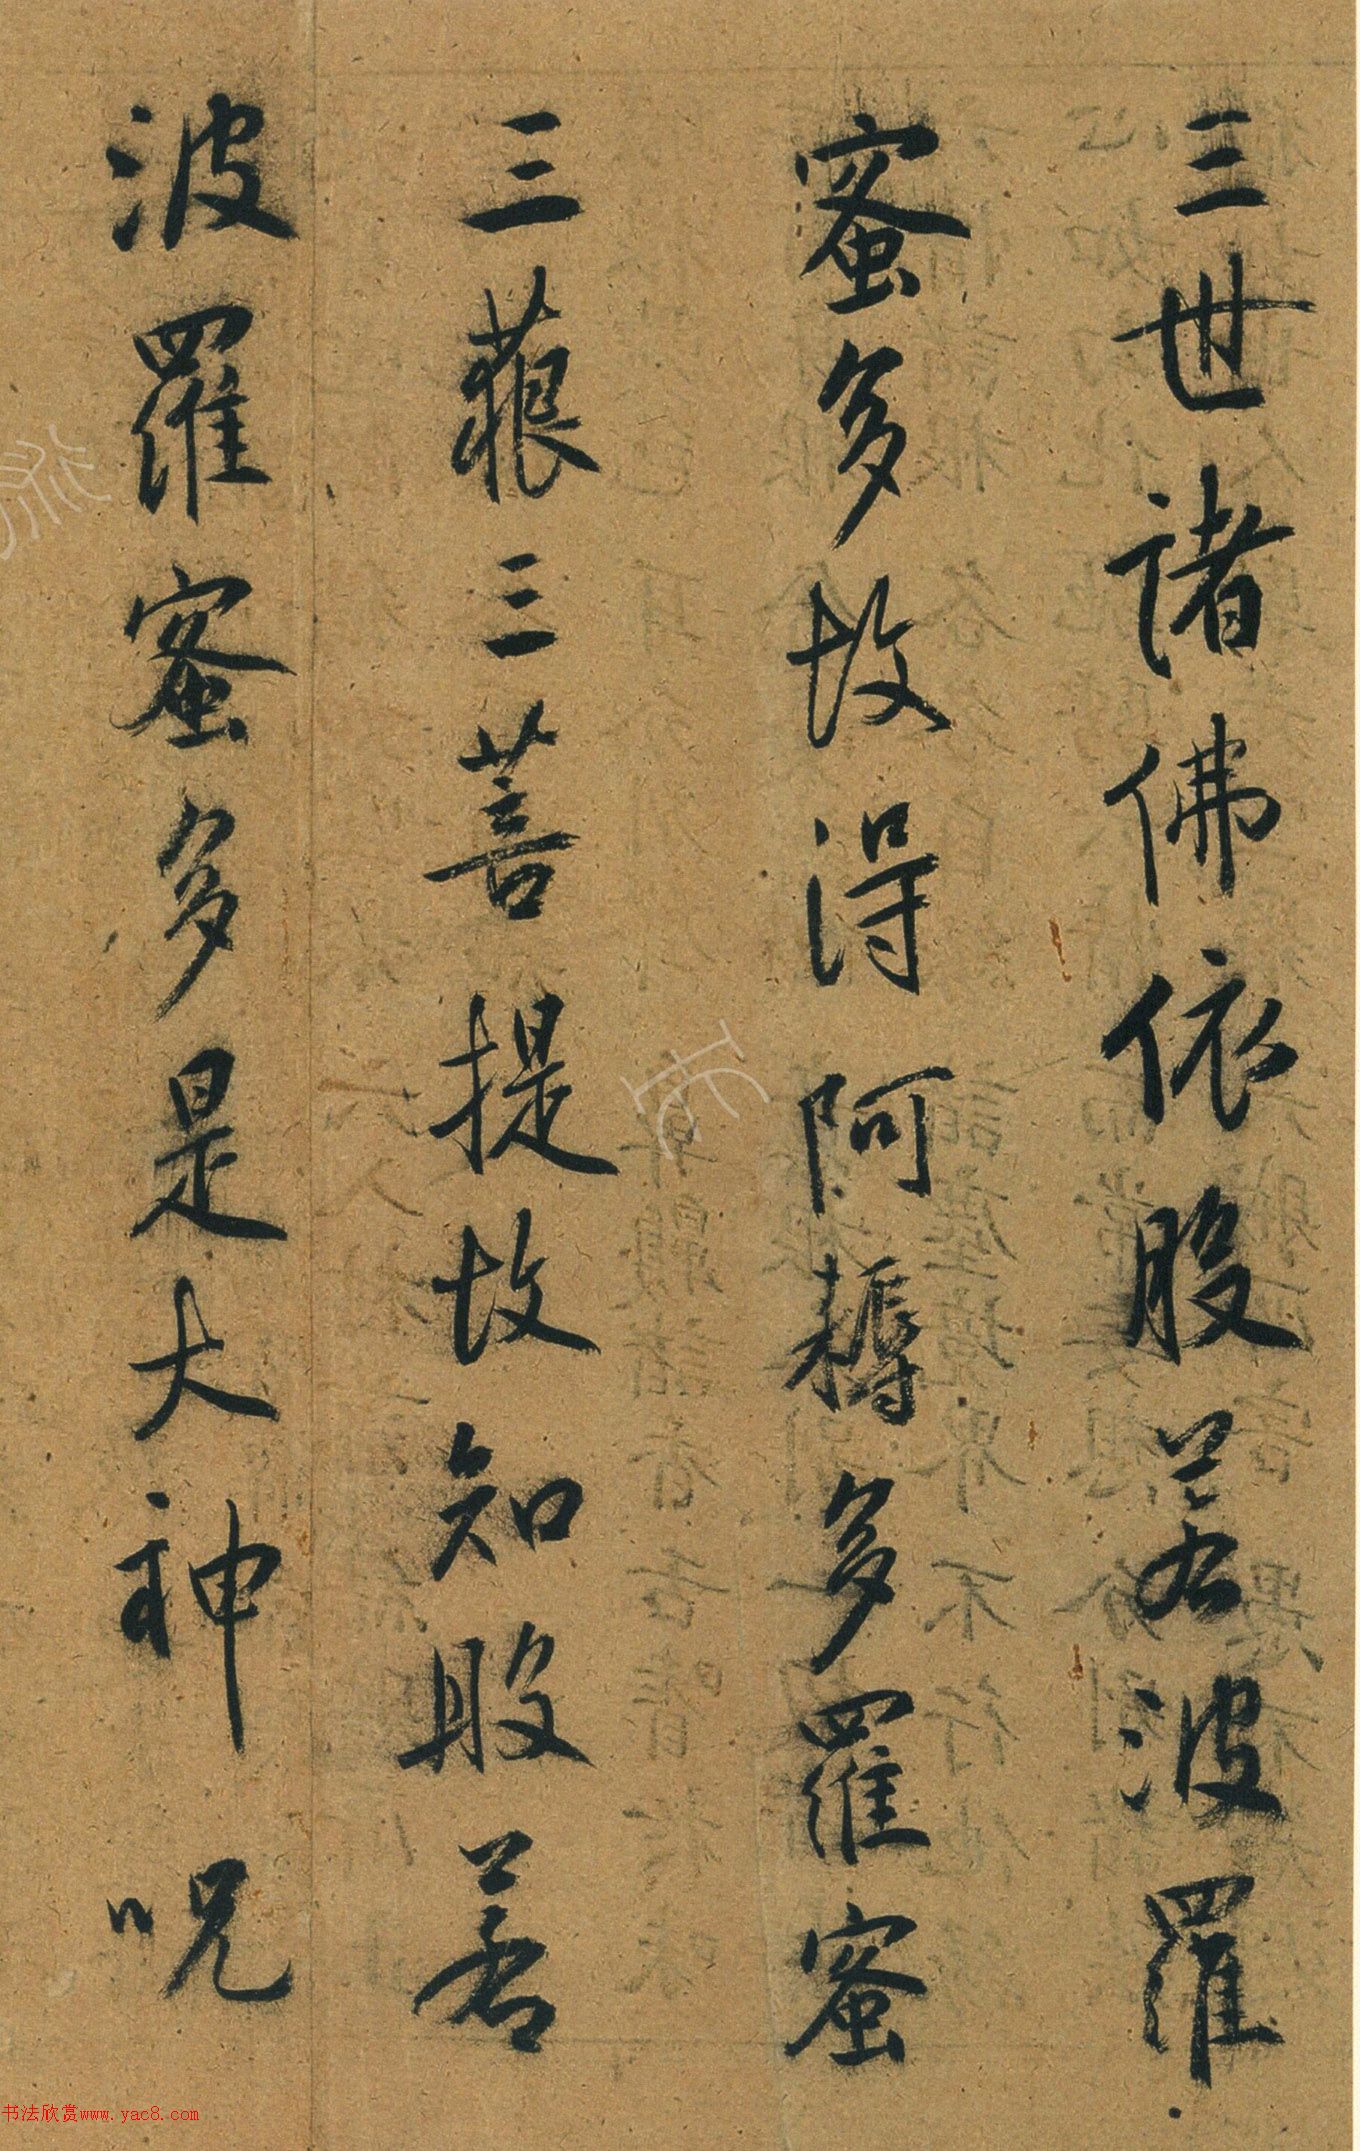 三世諸佛依般若波羅
蜜多故得阿耨多羅蜜
三藐三菩提故知般若
波羅蜜多是大神呪
书法欣赏www.yac8.com